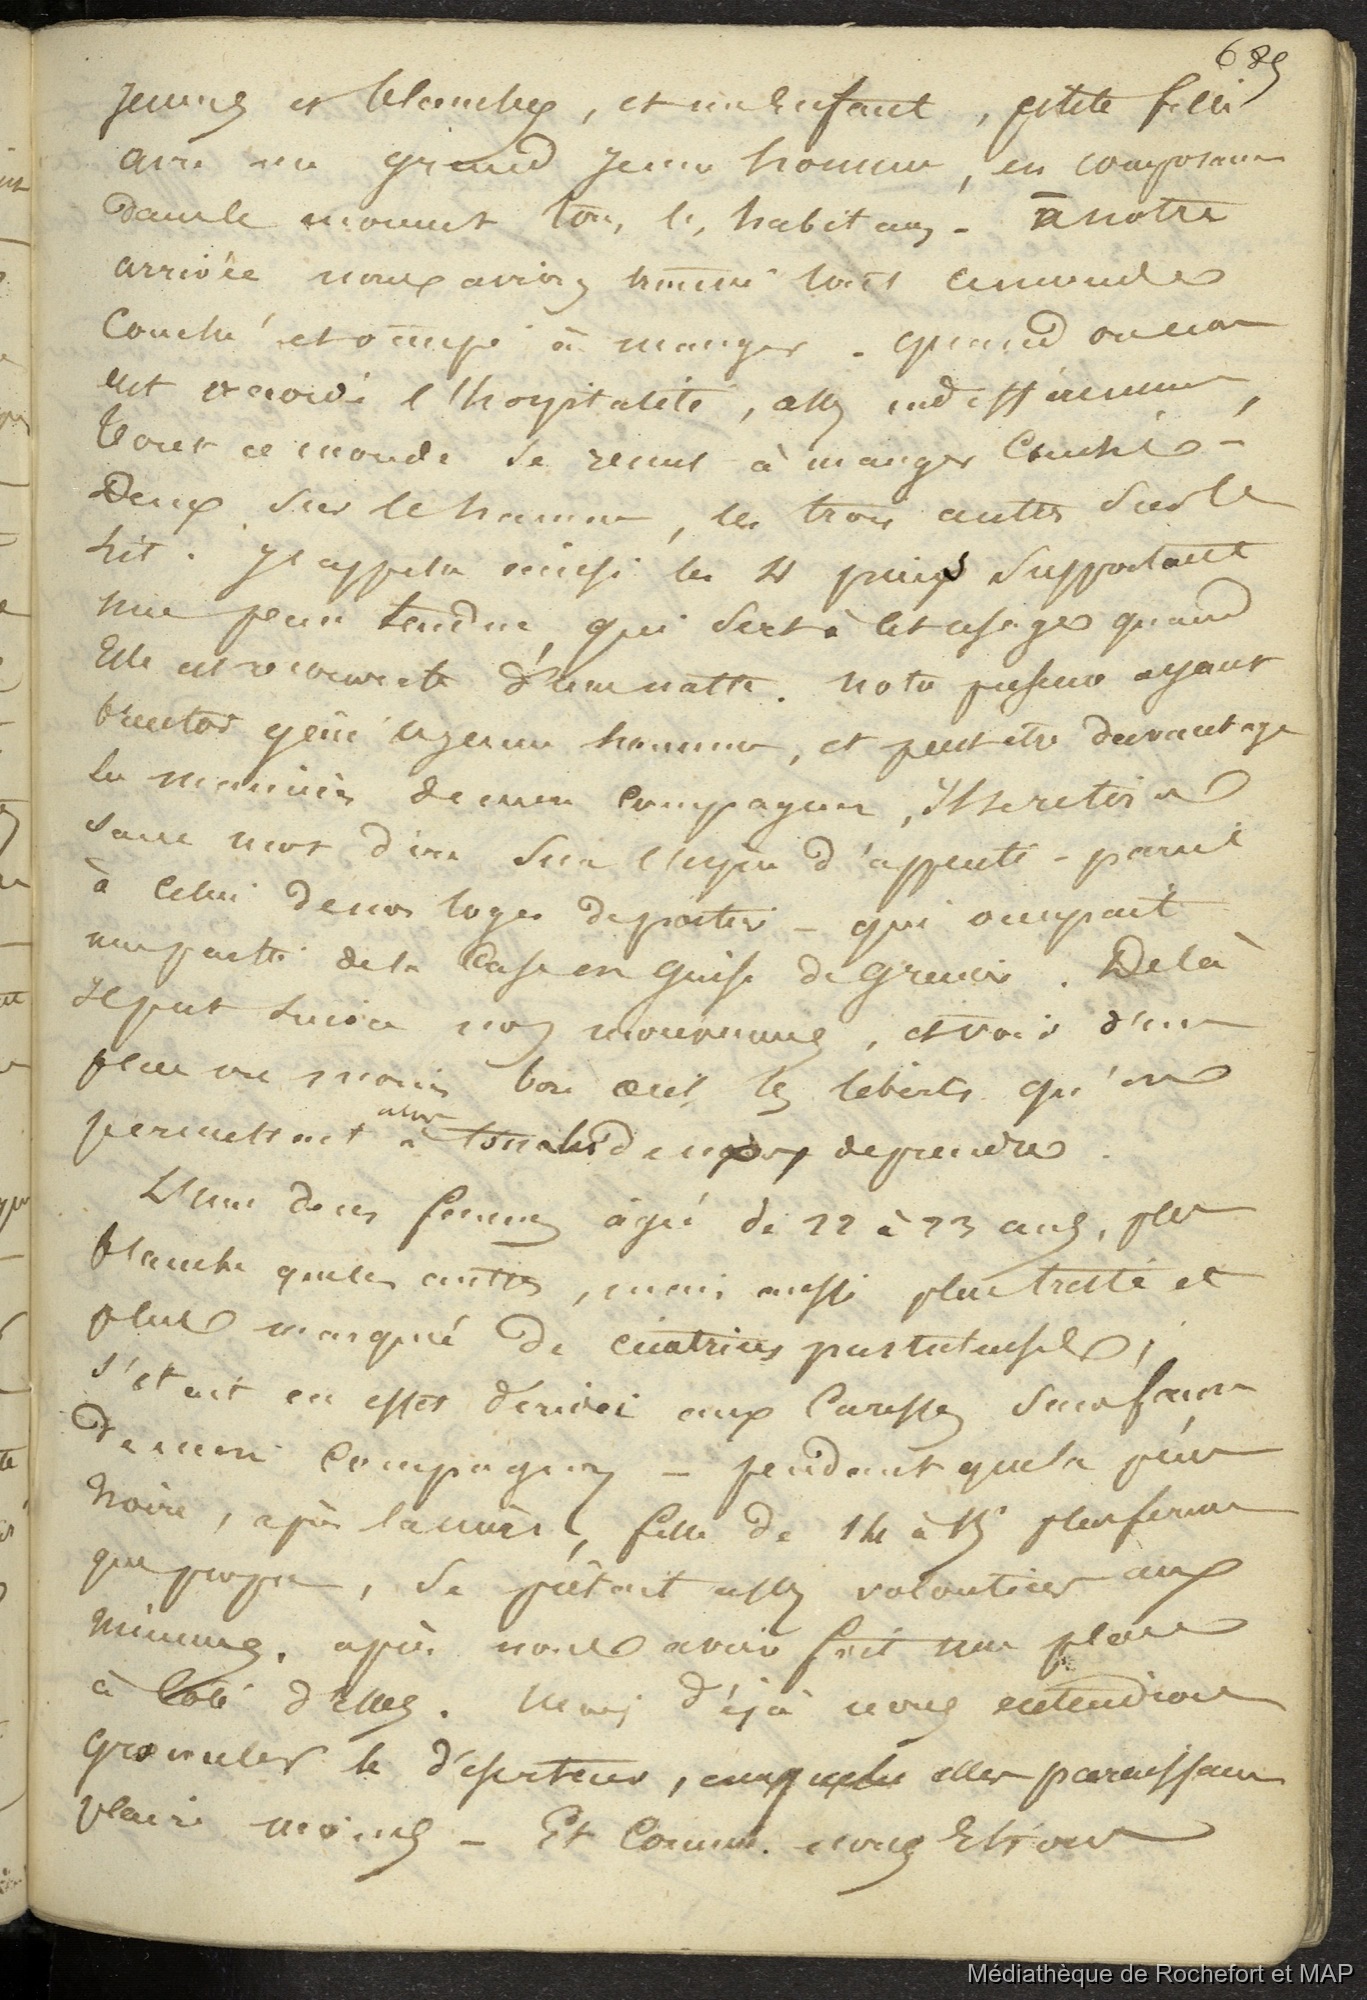 689
jeunes et blanches, et un Enfant, petite fille
avec un grand jeune homme, en composaient
dans le moment tous les habitans - à notre
arrivée nous avions trouvé tout ce monde
Couché et occupé à manger. quand on nous
eut accordé l'hospitalité, assez indifféremment,
tout ce monde se remit à manger Couché -
Deux sur le hamac, les trois autres sur le
lit. J'appelle ainsi les 4 pieux supportant
une peau tendue, qui sert à cet usage quand
Elle est recouverte d'une natte. Notre présence ayant
bientôt gêné le jeune homme, et peut être davantage
les manières de mon compagnon, il se retira
sans mot dire sur l'espèce d'appenti - pareil
à celui de nos loges de portier - qui occupait
une partie de la Case en guise de grenier. De là
il put suivre nos mouvements, et voir d'un
plus ou moins bon œil les libertés qu'on
permettait à
L'une de ces femmes âgée de 22 à 23 ans, plus
blanche que les autres, mais aussi plus triste et
plus marquée de cicatrices pustuleuses,
s'était en effet dérobée aux Caresses sans façon
de mon Compagnon - pendant que la
Noire, après la mère, fille de 14 à 15 plus ferme
que propre, se prêtait assez volontiers aux
miennes. après nous avoir fait une place
à Coté d'Elles. Mais déjà nous entendions
grommeler le déserteur, auquel elles paraissaient
plaire moins - Et Comme nous Etions